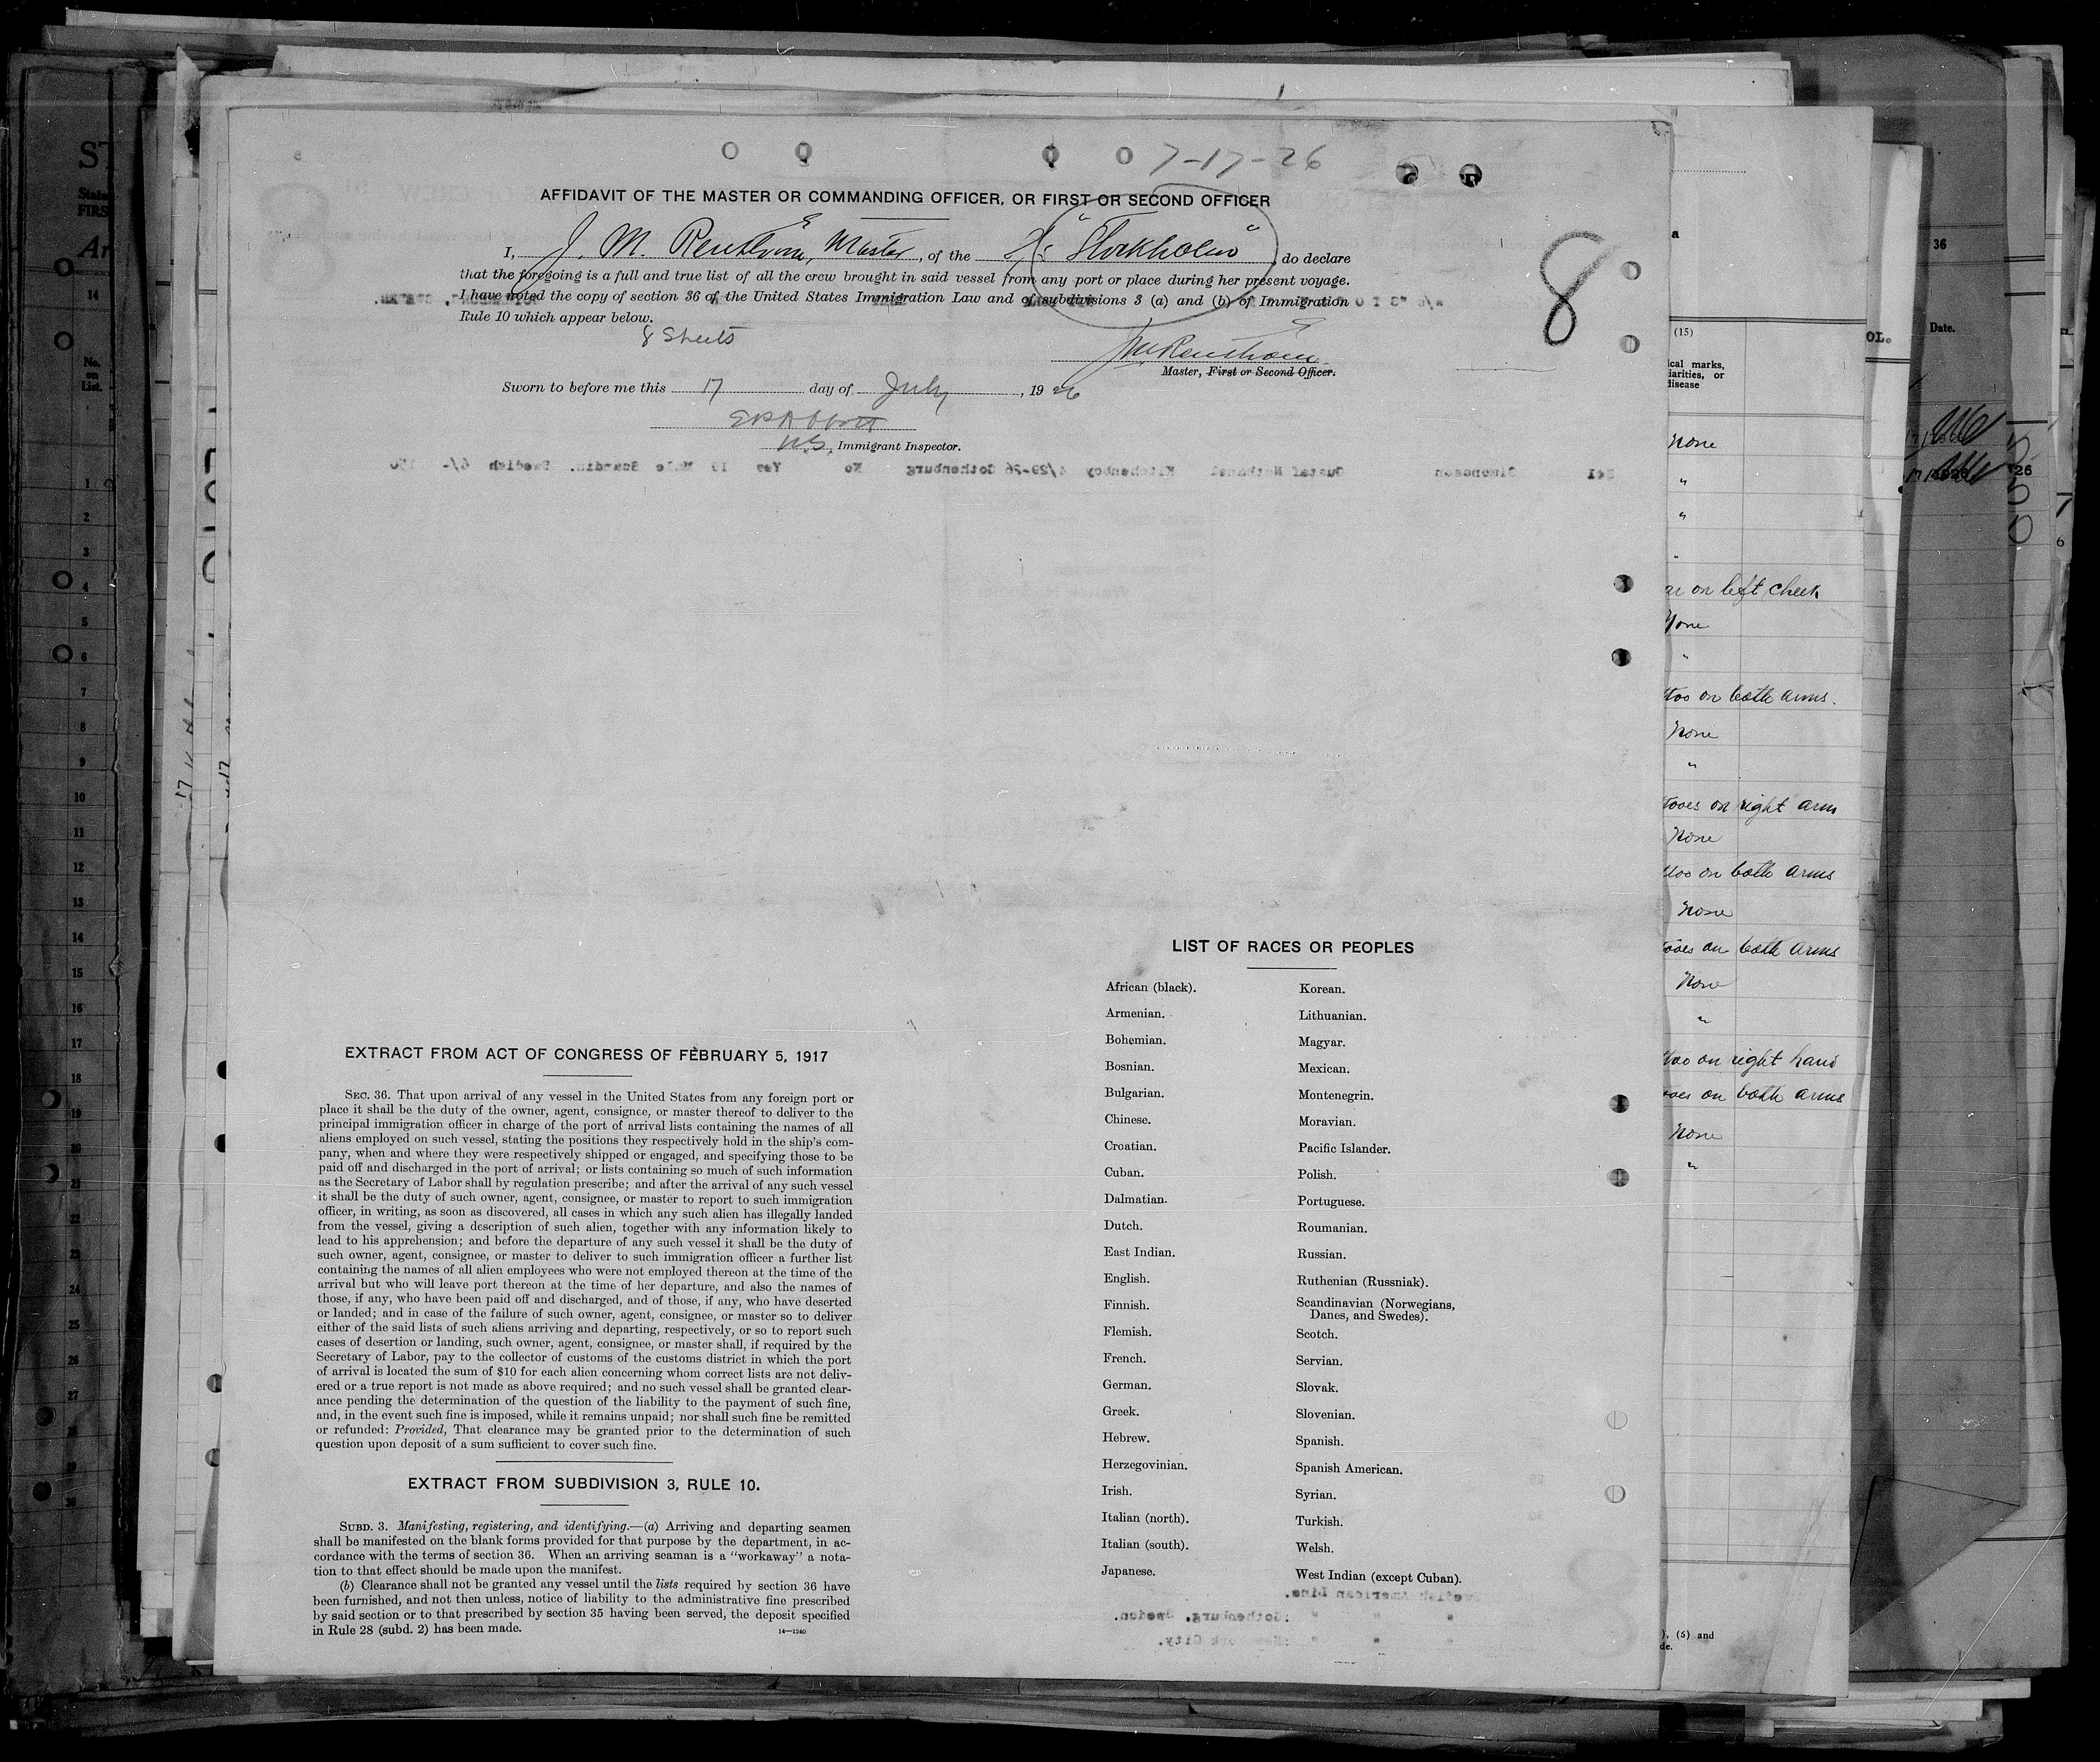 7-17-26
AFFIDAVIT OF THE MASTER OR COMMANDING OFFICER, OR FIRST OR SECOND OFFICER
I, J. M. , Master, of the "Stockholm" do declare
that the foregoing is a full and true list of all the crew brought in said vessel from any port or place during her present voyage.
I have noted the copy of section 36 of the United States Immigration Law and of subdivisions 3 (a) and (b) of Immigration
Rule 10 which appear below.
8 Sheets
8
Master, First or Second Officer.
Sworn to before me this 17 day of July, 1926
U.S. Immigrant Inspector.
LIST OF RACES OR PEOPLES
African (black).
Armenian.
Bohemian.
Bosnian.
Bulgarian.
Chinese.
Croatian.
Cuban.
Dalmatian.
Dutch.
East Indian.
English.
Finnish.
Flemish.
French.
German.
Greek.
Hebrew.
Herzegovinian.
Irish.
Italian (north).
Italian (south).
Japanese.
Korean.
Lithuanian.
Magyar.
Mexican.
Montenegrin.
Moravian.
Pacific Islander.
Polish.
Portuguese.
Roumanian.
Russian.
Ruthenian (Russniak).
Scandinavian (Norwegians,
Danes, and Swedes).
Scotch.
Servian.
Slovak.
Slovenian.
Spanish.
Spanish American.
Syrian.
Turkish.
Welsh.
West Indian (except Cuban).
EXTRACT FROM ACT OF CONGRESS OF FEBRUARY 5, 1917
SEC. 36. That upon arrival of any vessel in the United States from any foreign port or
place it shall be the duty of the owner, agent, consignee, or master thereof to deliver to the
principal immigration officer in charge of the port of arrival lists containing the names of all
aliens employed on such vessel, stating the positions they respectively hold in the ship's com-
pany, when and where they were respectively shipped or engaged, and specifying those to be
paid off and discharged in the port of arrival; or lists containing so much of such information
as the Secretary of Labor shall by regulation prescribe; and after the arrival of any such vessel
it shall be the duty of such owner, agent, consignee, or master to report to such immigration
officer, in writing, as soon as discovered, all cases in which any such alien has illegally landed
from the vessel, giving a description of such alien, together with any information likely to
lead to his apprehension; and before the departure of any such vessel it shall be the duty of
such owner, agent, consignee, or master to deliver to such immigration officer a further list
containing the names of all alien employees who were not employed thereon at the time of the
arrival but who will leave port thereon at the time of her departure, and also the names of
those, if any, who have been paid off and discharged, and of those, if any, who have deserted
or landed; and in case of the failure of such owner, agent, consignee, or master so to deliver
either of the said lists of such aliens arriving and departing, respectively, or so to report such
cases of desertion or landing, such owner, agent, consignee, or master shall, if required by the
Secretary of Labor, pay to the collector of customs of the customs district in which the port
of arrival is located the sum of $10 for each alien concerning whom correct lists are not deliv-
ered or a true report is not made as above required; and no such vessel shall be granted clear-
ance pending the determination of the question of the liability to the payment of such fine,
and, in the event such fine is imposed, while it remains unpaid; nor shall such fine be remitted
or refunded: Provided, That clearance may be granted prior to the determination of such
question upon deposit of a sum sufficient to cover such fine.
EXTRACT FROM SUBDIVISION 3, RULE 10.
SUBD. 3. Manifesting, registering, and identifying.—(a) Arriving and departing seamen
shall be manifested on the blank forms provided for that purpose by the department, in ac-
cordance with the terms of section 36. When an arriving seaman is a "workaway" a nota-
tion to that effect should be made upon the manifest.
(b) Clearance shall not be granted any vessel until the lists required by section 36 have
been furnished, and not then unless, notice of liability to the administrative fine prescribed
by said section or to that prescribed by section 35 having been served, the deposit specified
in Rule 28 (subd. 2) has been made.
14—1240
(15)
ical marks,
iarities, or
disease
None
"
"
"
ar on left cheek
None
"
ttoo on both arms.
None
"
tooes on right arm
None
ttoo on both arms
None
tooes on both arms
None
"
ttoo on right hand
tooes on both arms
None
"
), (5) and
de.
OL.
36
Date.
26
ST
FIRS
Ar
14
No.
on
List.
1
2
3
4
5
6
7
8
9
10
11
12
13
14
15
16
17
18
19
20
21
22
23
24
25
26
27
28
29
30